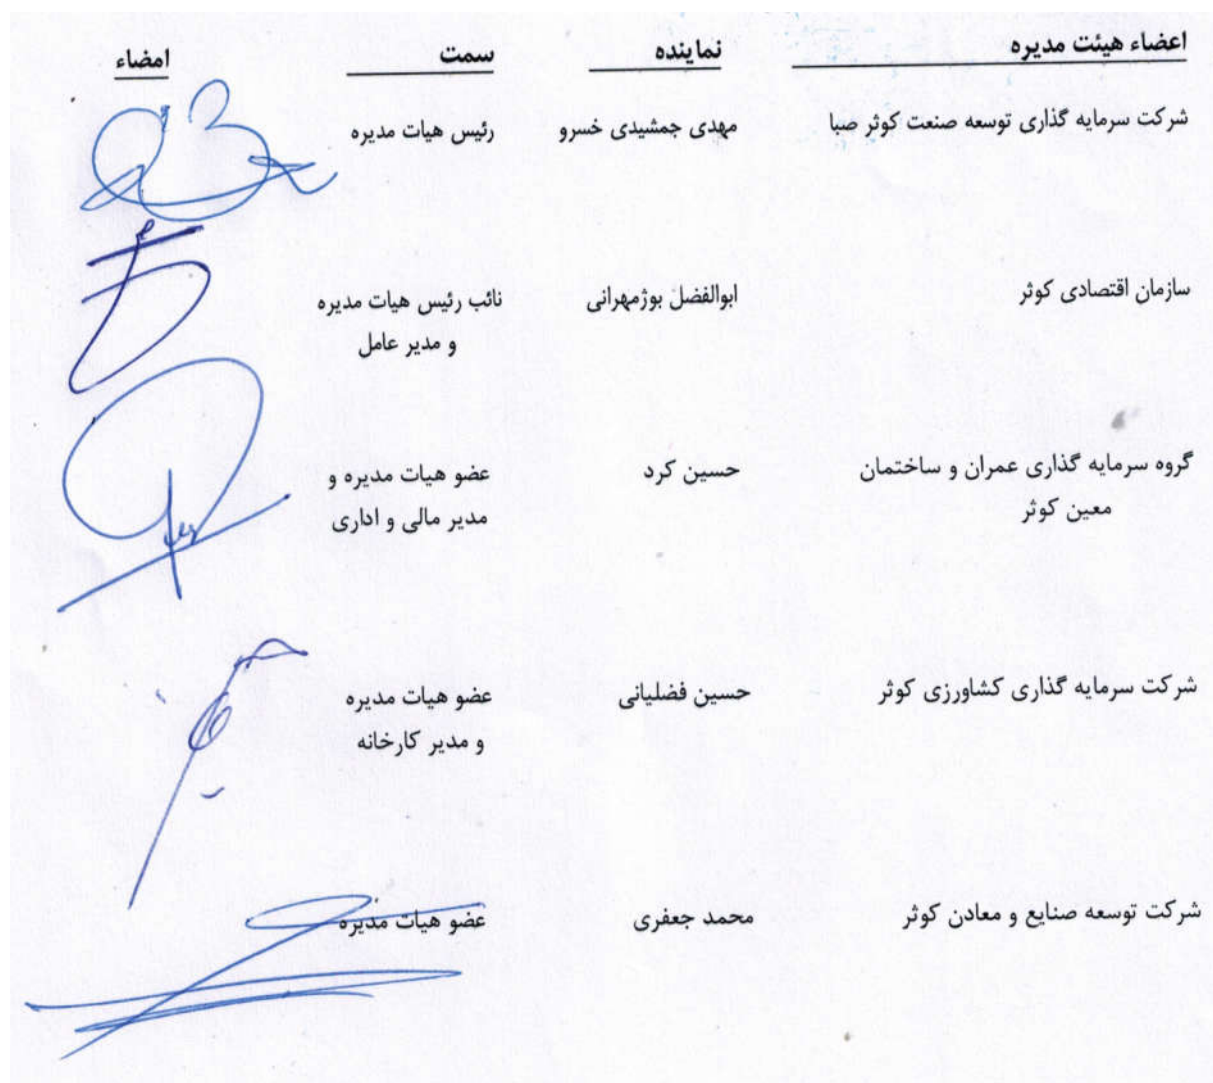 اعضاء هیئت مدیره نماینده سمت امضاء
شرکت سرمایه گذاری توسعه صنعت کوثر صبا مهدی جمشیدی خسرو رئیس هیات مدیره
سازمان اقتصادی کوثر ابوالفضل بوژمهرانی نائب رئیس هیات مدیره
و مدیر عامل
گروه سرمایه گذاری عمران و ساختمان حسین کرد عضو هیات مدیره و
معین کوثر مدیر مالی و اداری
شرکت سرمایه گذاری کشاورزی کوثر حسین فضلیانی عضو هیات مدیره
و مدیر کارخانه
شرکت توسعه صنایع و معادن کوثر محمد جعفری عضو هیات مدیره